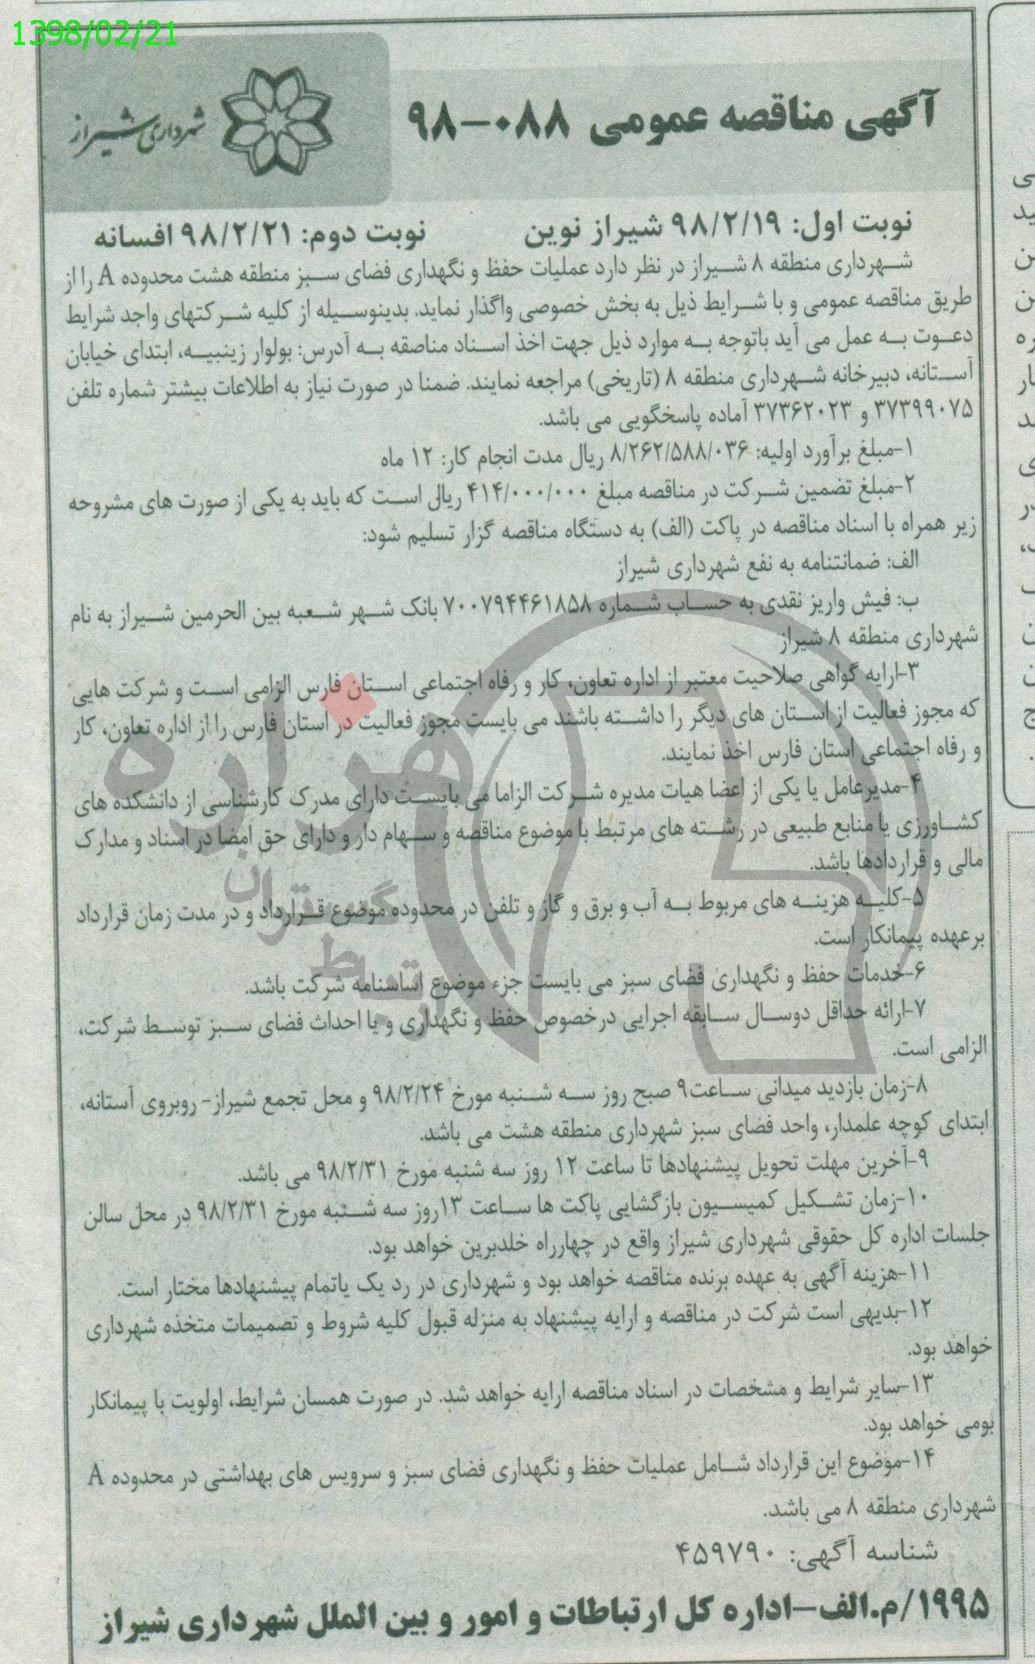 1398/02/21
آگهی مناقصه عمومی ۰۸۸-۹۸
شهرداری شیراز
نوبت اول: ۹۸/۲/۱۹ شیراز نوین نوبت دوم: ۹۸/۲/۲۱ افسانه
شهرداری منطقه ۸ شیراز در نظر دارد عملیات حفظ و نگهداری فضای سبز منطقه هشت محدوده A را از
طریق مناقصه عمومی و با شرایط ذیل به بخش خصوصی واگذار نماید. بدینوسیله از کلیه شرکتهای واجد شرایط
دعوت به عمل می آید باتوجه به موارد ذیل جهت اخذ اسناد مناصقه به آدرس: بولوار زینبیه، ابتدای خیابان
آستانه، دبیرخانه شهرداری منطقه ۸ (تاریخی) مراجعه نمایند. ضمنا در صورت نیاز به اطلاعات بیشتر شماره تلفن
۳۷۳۹۹۰۷۵ و ۳۷۳۶۲۰۲۳ آماده پاسخگویی می باشد.
۱-مبلغ برآورد اولیه: ۸/۲۶۲/۵۸۸/۰۳۶ ریال مدت انجام کار: ۱۲ ماه
۲-مبلغ تضمین شرکت در مناقصه مبلغ ۴۱۴/۰۰۰/۰۰۰ ریال است که باید به یکی از صورت های مشروحه
زیر همراه با اسناد مناقصه در پاکت (الف) به دستگاه مناقصه گزار تسلیم شود:
الف: ضمانتنامه به نفع شهرداری شیراز
ب: فیش واریز نقدی به حساب شماره ۷۰۰۷۹۴۴۶۱۸۵۸ بانک شهر شعبه بین الحرمین شیراز به نام
شهرداری منطقه ۸ شیراز
۳-ارایه گواهی صلاحیت معتبر از اداره تعاون، کار و رفاه اجتماعی استان فارس الزامی است و شرکت هایی
که مجوز فعالیت از استان های دیگر را داشته باشند می بایست مجوز فعالیت در استان فارس را از اداره تعاون، کار
و رفاه اجتماعی استان فارس اخذ نمایند.
۴-مدیرعامل یا یکی از اعضا هیات مدیره شرکت الزاما می بایست دارای مدرک کارشناسی از دانشکده های
کشاورزی یا منابع طبیعی در رشته های مرتبط با موضوع مناقصه و سهام دار و دارای حق امضا در اسناد و مدارک
مالی و قراردادها باشد.
۵-کلیه هزینه های مربوط به آب و برق و گاز و تلفن در محدوده موضوع قرارداد و در مدت زمان قرارداد
برعهده پیمانکار است.
۶-خدمات حفظ و نگهداری فضای سبز می بایست جزء موضوع اساسنامه شرکت باشد.
۷-ارائه حداقل دوسال سابقه اجرایی درخصوص حفظ و نگهداری و یا احداث فضای سبز توسط شرکت،
الزامی است.
۸-زمان بازدید میدانی ساعت۹ صبح روز سه شنبه مورخ ۹۸/۲/۲۴ و محل تجمع شیراز- روبروی آستانه،
ابتدای کوچه علمدار، واحد فضای سبز شهرداری منطقه هشت می باشد.
۹-آخرین مهلت تحویل پیشنهادها تا ساعت ۱۲ روز سه شنبه مورخ ۹۸/۲/۳۱ می باشد.
۱۰-زمان تشکیل کمیسیون بازگشایی پاکت ها ساعت ۱۳روز سه شنبه مورخ ۹۸/۲/۳۱ در محل سالن
جلسات اداره کل حقوقی شهرداری شیراز واقع در چهارراه خلدبرین خواهد بود.
۱۱-هزینه آگهی به عهده برنده مناقصه خواهد بود و شهرداری در رد یک یاتمام پیشنهادها مختار است.
۱۲-بدیهی است شرکت در مناقصه و ارایه پیشنهاد به منزله قبول کلیه شروط و تصمیمات متخذه شهرداری
خواهد بود.
۱۳-سایر شرایط و مشخصات در اسناد مناقصه ارایه خواهد شد. در صورت همسان شرایط، اولویت با پیمانکار
بومی خواهد بود.
۱۴-موضوع این قرارداد شامل عملیات حفظ و نگهداری فضای سبز و سرویس های بهداشتی در محدوده A
شهرداری منطقه ۸ می باشد.
شناسه آگهی: ۴۵۹۷۹۰
۱۹۹۵/م.الف-اداره کل ارتباطات و امور و بین الملل شهرداری شیراز